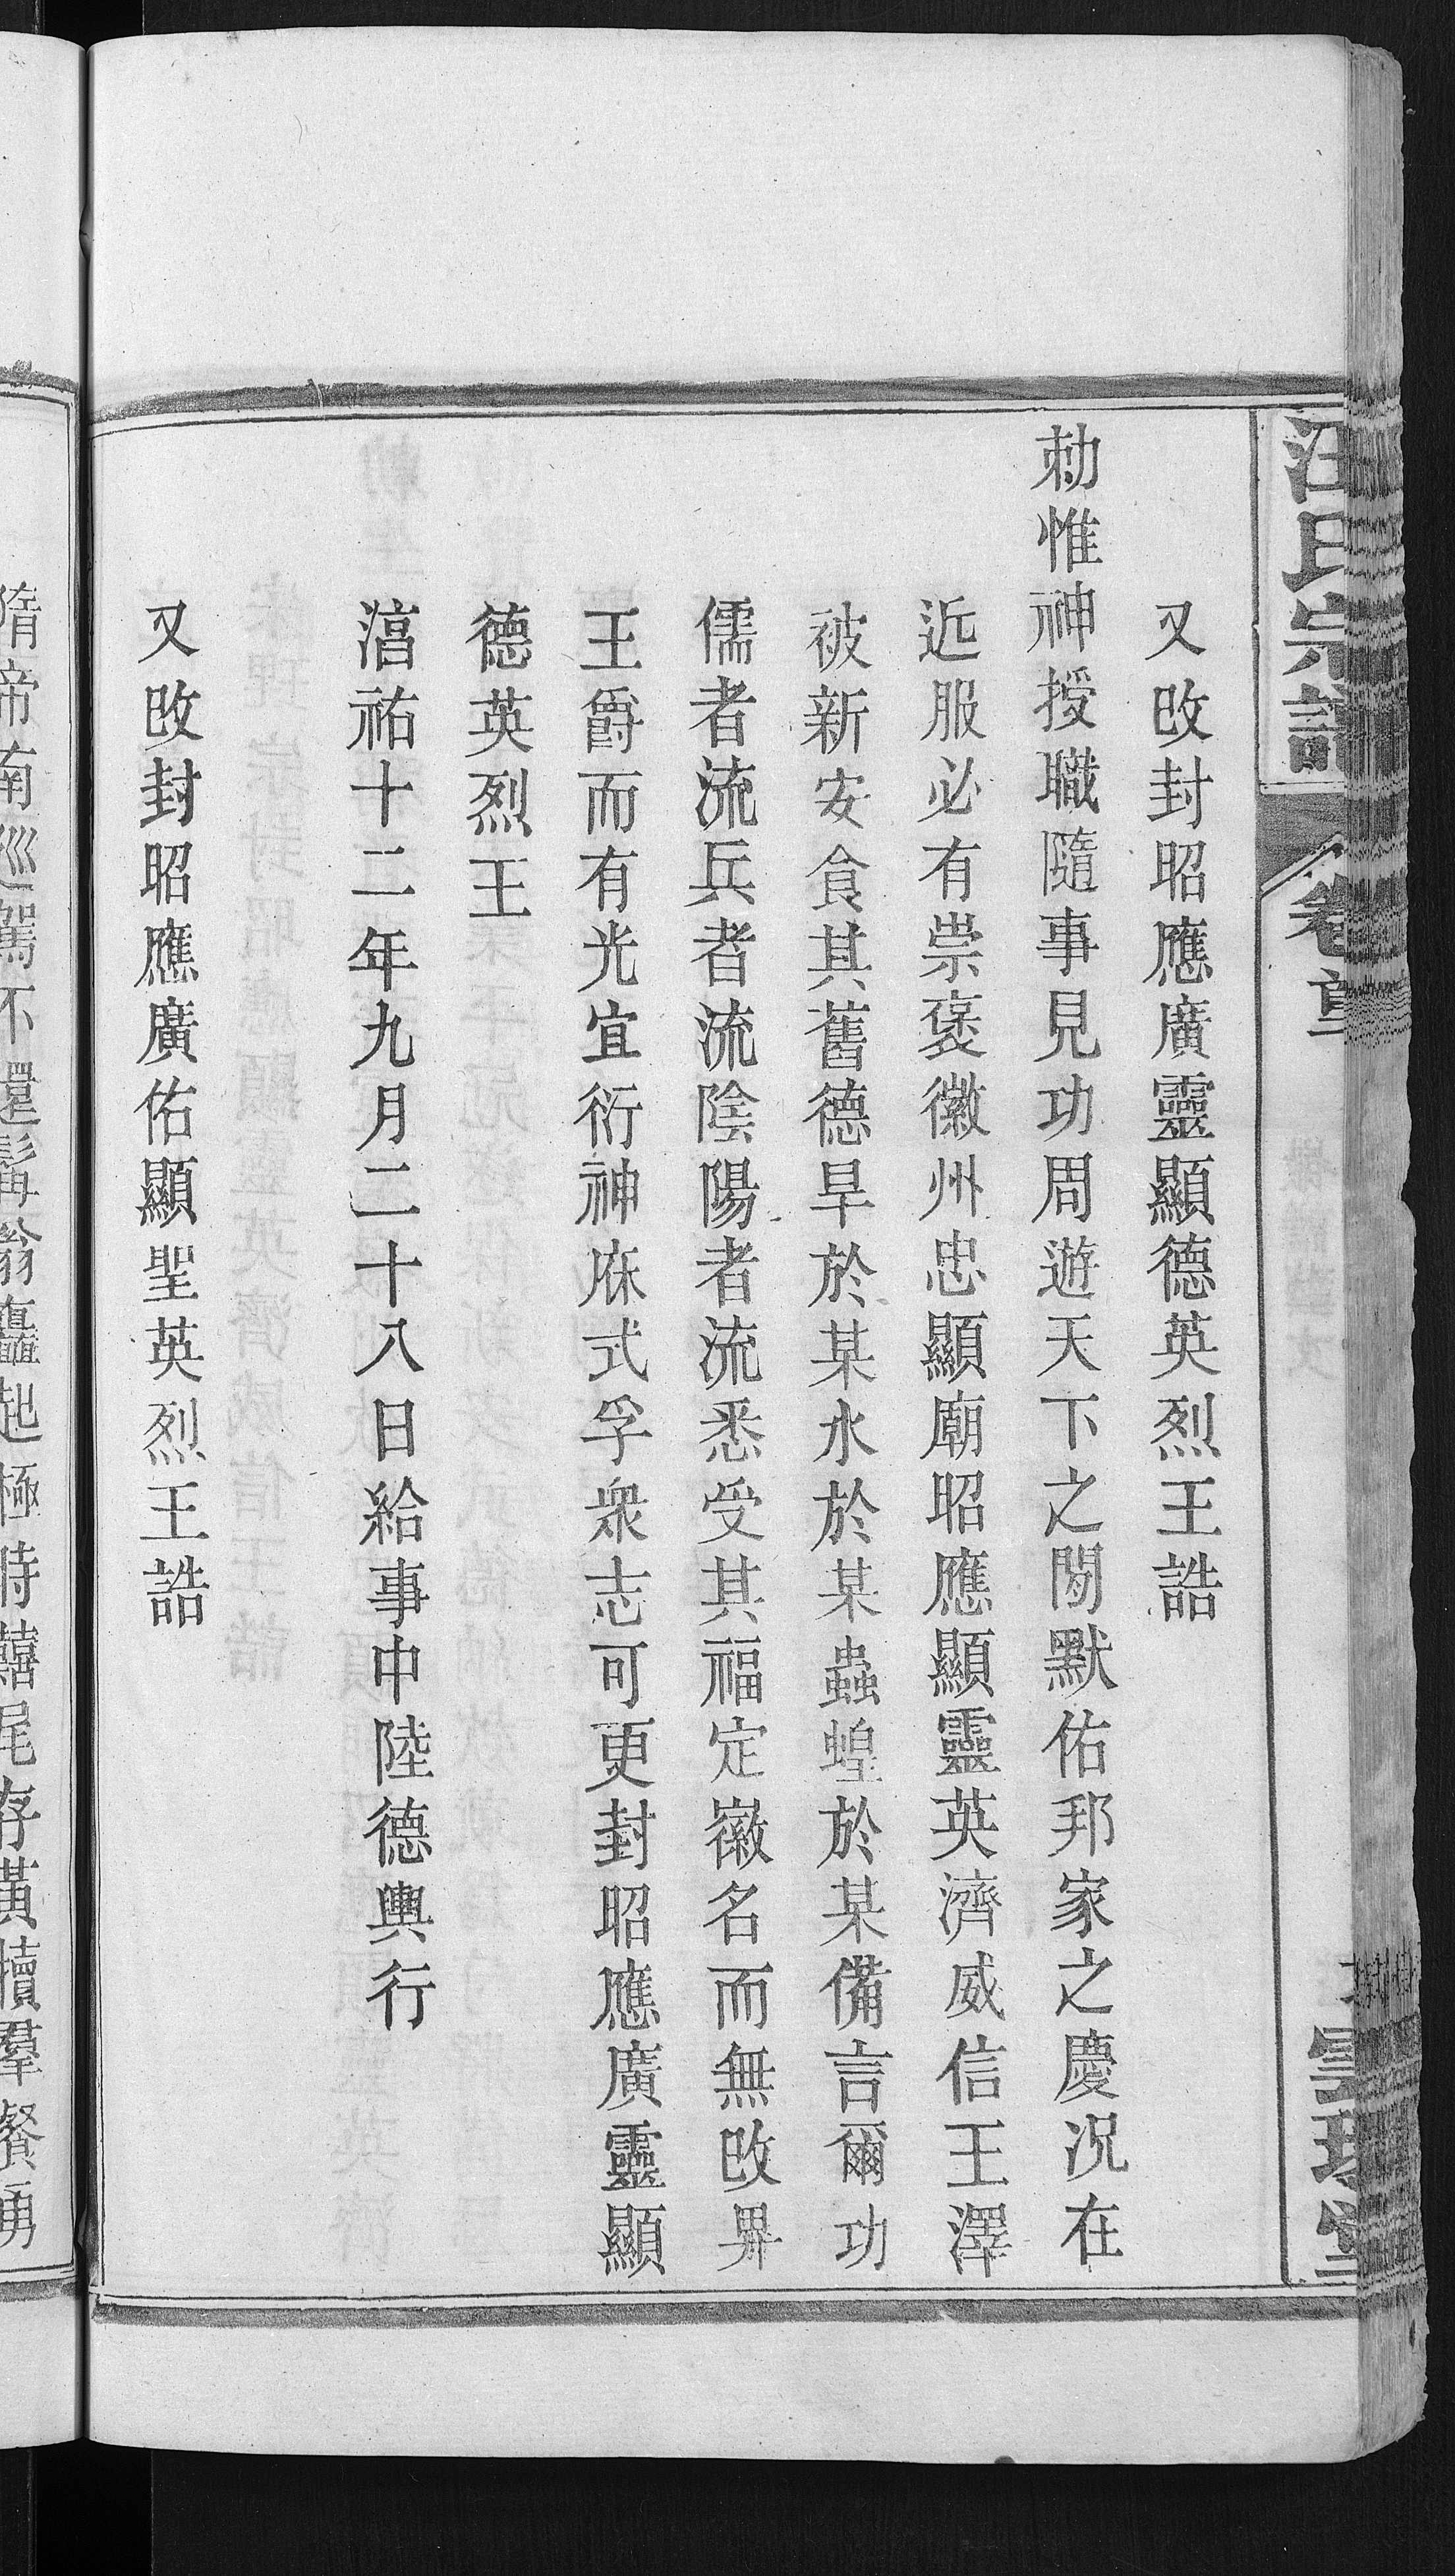 汪氏宗譜
卷首
又改封昭應廣靈顯德英烈王誥
勅惟神授職隨事見功周遊天下之間默佑邦家之慶况在
近服必有崇褒徽州忠顯廟昭應顯靈英濟威信王澤
被新安食其舊德旱於某水於某蟲蝗於某備言爾功
儒者流兵者流陰陽者流悉受其福定徽名而無改畀
王爵而有光宜衍神庥式孚衆志可更封昭應廣靈顯
德英烈王
淳祐十二年九月二十八日給事中陸德輿行
又改封昭應廣佑顯聖英烈王誥
隋帝南巡駕不還髯翁
起極時
尾存黃犢羣餐勇